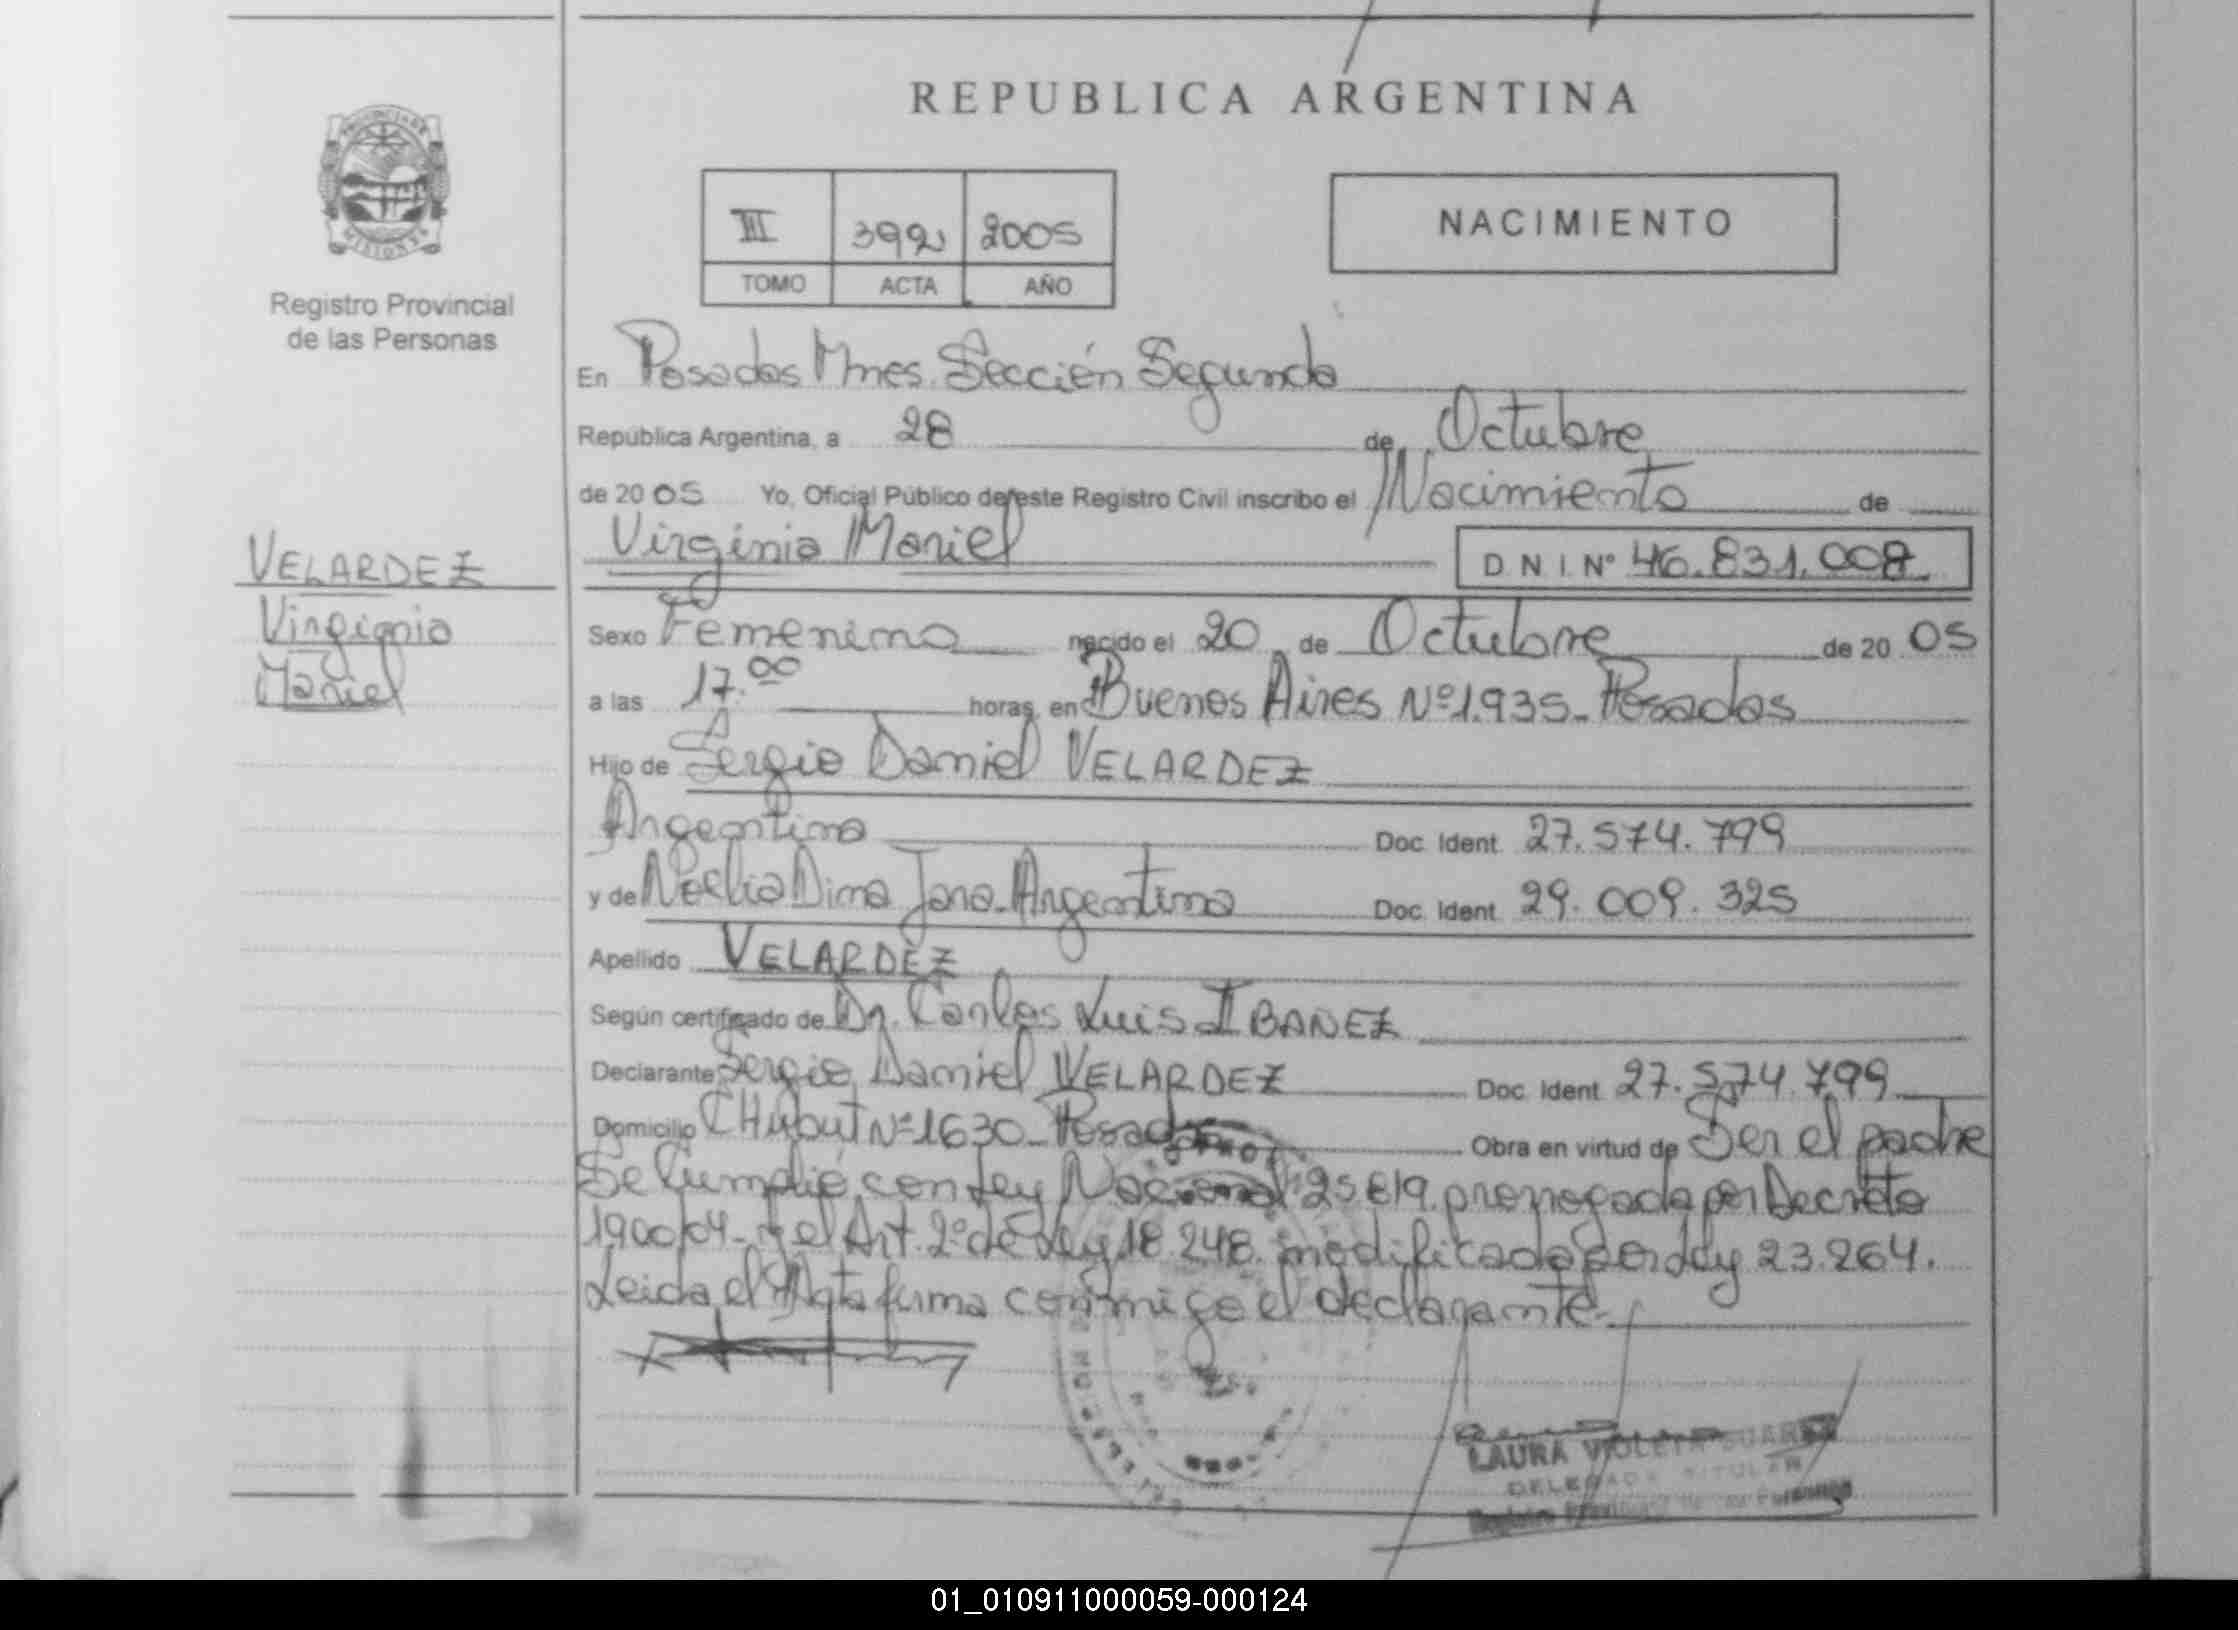 REPUBLICA ARGENTINA
PROVINCIA DE
MISIONES
Registro Provincial
de las Personas
III 392 2005
TOMO ACTA AÑO
NACIMIENTO
En Posadas Mnes. Sección Segunda
República Argentina, a 28 de Octubre
de 2005 Yo, Oficial Público de este Registro Civil inscribo el Nacimiento de
Virginia Mariel
D N I Nº 46.831.008
VELARDEZ
Virginia
Mariel
Sexo Femenino nacido el 20 de Octubre de 2005
a las 17.00 horas, en Buenos Aires Nº 1.935 - Posadas
Hijo de Sergio Daniel VELARDEZ
Argentino Doc. Ident. 27.574.799
y de Noelia Dina Jara - Argentina Doc. Ident. 29.009.325
Apellido VELARDEZ
Según certificado de Dr. Carlos Luis IBAÑEZ
Declarante Sergio Daniel VELARDEZ Doc. Ident. 27.574.799
Domicilio CHubut Nº 1630 - Posadas Obra en virtud de Ser el padre
Se Cumplió con Ley Nacional 25.819. prorrogada por Decreto
1900/04 - y el Art. 2º de Ley 18.248. modificada por Ley 23.264.
Leida el Acta firma conmigo el declarante -
LAURA VIOLETA SUAREZ
DELEGADA TITULAR
Registro Provincial de las Personas
01_010911000059-000124